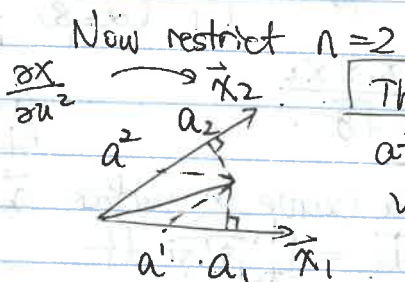 Now restrict n=2
∂X/∂u² → x⃗2 Th
a² a2
a¹ a1 x⃗1